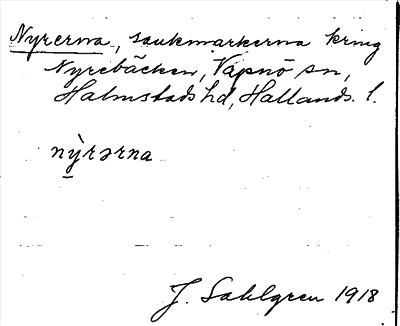 Nyrerna, sankmarkerna kring
Nyrebäcken, Vapnö sn,
Halmstads hd, Hallands l.
nỳrərna
J. Sahlgren 1918